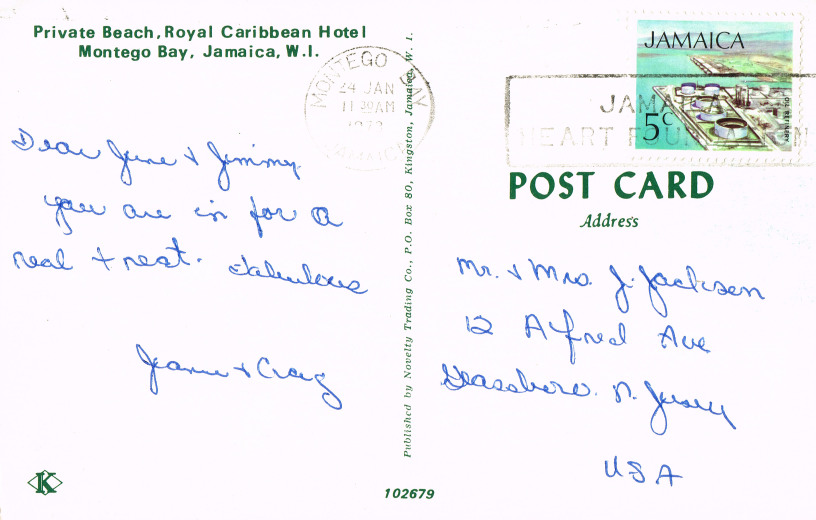 Private Beach, Royal Caribbean Hotel
Montego Bay, Jamaica, W.I.
MONTEGO BAY
24 JAN
11 30AM
JAMAICA
JAMAICA
5c
OIL REFINERY
JAMAICA
HEART FOUNDATION
Dear June & Jimmy
you are in for a
real treat. Fabulous
Jeanne & Craig
Published by Novelty Trading Co., P.O. Box 80, Kingston, Jamaica, W. I.
POST CARD
Address
Mr. & Mrs. J. Jackson
12 Alfred Ave
Glassboro. N. Jersey
USA
K
102679